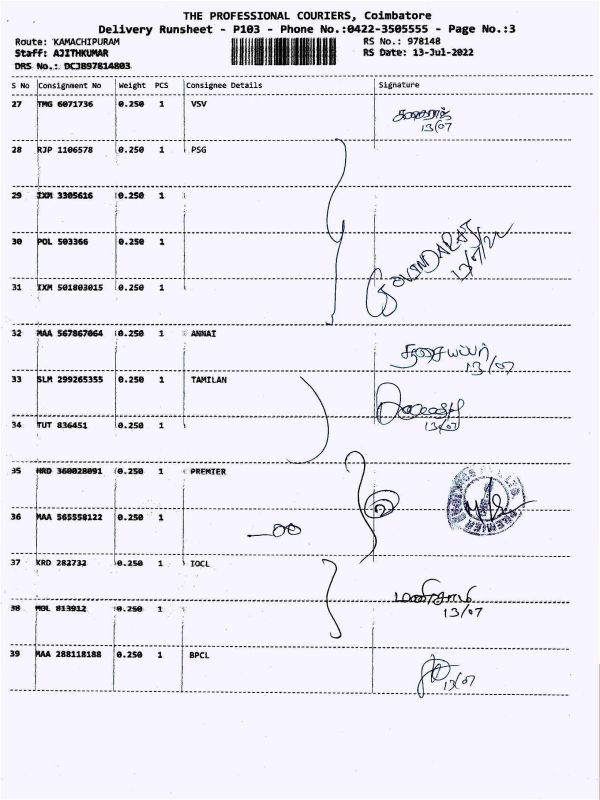 THE PROFESSIONAL COURIERS, Coimbatore
Delivery Runsheet - P103 - Phone No.:0422-3505555 - Page No.:3
Route: KAMACHIPURAM RS No.: 978148
Staff: AJITHKUMAR RS Date: 13-Jul-2022
DRS No.: DCJB97814803
S No Consignment No Weight PCS Consignee Details Signature
27 TMG 6071736 0.250 1 VSV
13/07
28 RJP 1106578 0.250 1 PSG
29 IXM 3305616 0.250 1
30 POL 503366 0.250 1
GOVINDARAJ
13/07/22
31 IXM 501803015 0.250 1
32 MAA 567867064 0.250 1 ANNAI
13/07
33 SLM 299265355 0.250 1 TAMILAN
13/07
34 TUT 836451 0.250 1
35 KRD 360028091 0.250 1 PREMIER
36 MAA 565558122 0.250 1
37 KRD 282732 0.250 1 IOCL
13/07
38 MGL 813912 0.250 1
39 MAA 288118188 0.250 1 BPCL
13/07